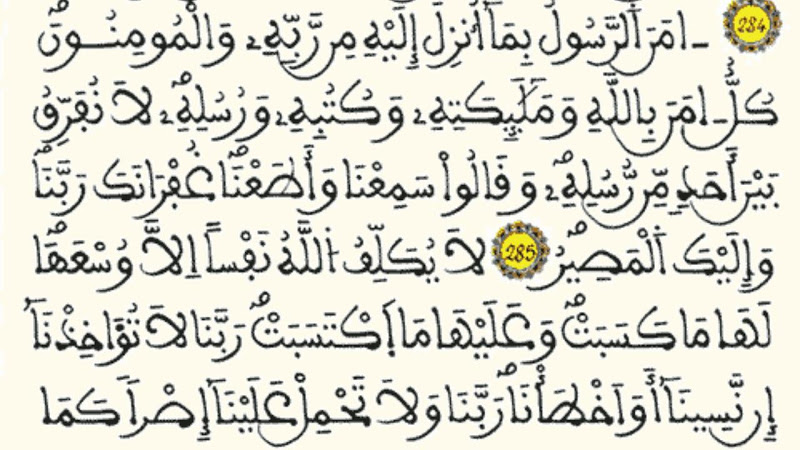 ءَامَنَ اَ۬لرَّسُولُ بِمَآ أُنزِلَ إِلَيْهِ مِن رَّبِّهِۦ وَالْمُومِنُونَۖ 284
كُلٌّ ءَامَنَ بِاللَّهِ وَمَلَٰٓئِكَتِهِۦ وَكُتُبِهِۦ وَرُسُلِهِۦۖ لَا نُفَرِّقُ
بَيْنَ أَحَدٖ مِّن رُّسُلِهِۦۖ وَقَالُواْ سَمِعْنَا وَأَطَعْنَاۖ غُفْرَانَكَ رَبَّنَا
وَإِلَيْكَ اَ۬لْمَصِيرُۖ 285 لَا يُكَلِّفُ اُ۬للَّهُ نَفْساً اِلَّا وُسْعَهَاۖ
لَهَا مَا كَسَبَتْۖ وَعَلَيْهَا مَا اَ۪كْتَسَبَتْۖ رَبَّنَا لَا تُؤَاخِذْنَآ
إِن نَّسِينَآ أَوَ اَخْطَأْنَاۖ رَبَّنَا وَلَا تَحْمِلْ عَلَيْنَآ إِصْراً كَمَا